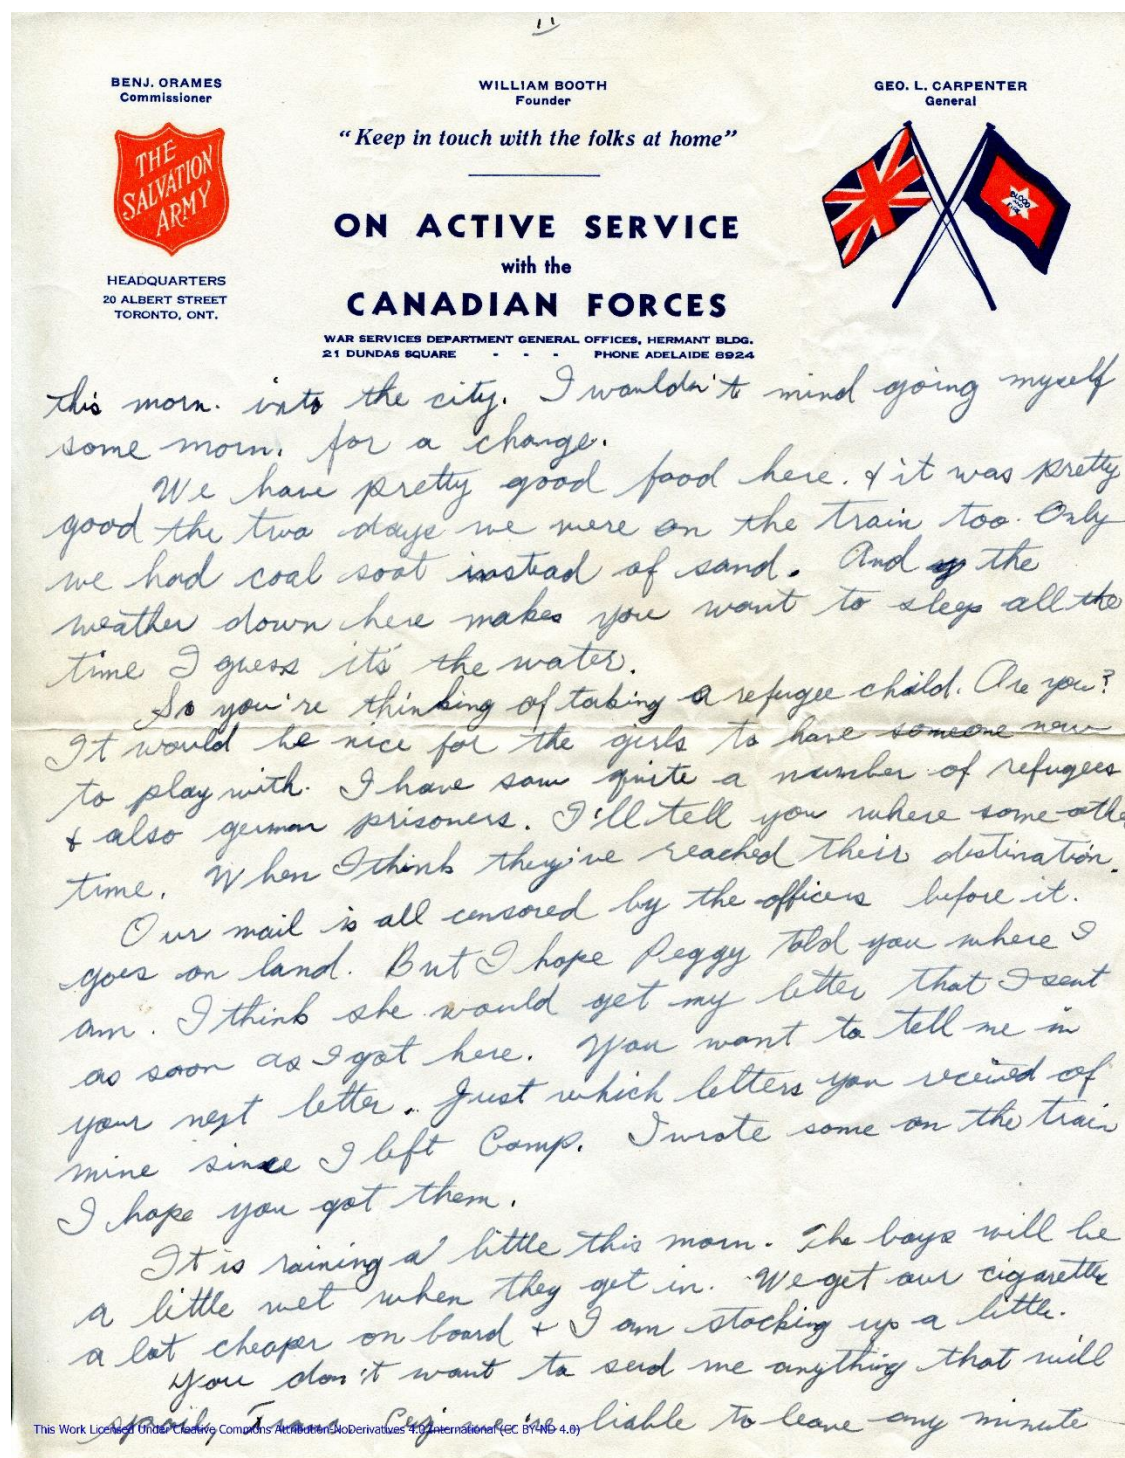 11
BENJ. ORAMES
Commissioner
WILLIAM BOOTH
Founder
GEO. L. CARPENTER
General
"Keep in touch with the folks at home"
THE
SALVATION
ARMY
BLOOD
AND
FIRE
ON ACTIVE SERVICE
with the
CANADIAN FORCES
HEADQUARTERS
20 ALBERT STREET
TORONTO, ONT.
WAR SERVICES DEPARTMENT GENERAL OFFICES, HERMANT BLDG.
21 DUNDAS SQUARE - - - PHONE ADELAIDE 8924
this morn. into the city. I wouldn't mind going myself
some morn. for a change.
We have pretty good food here. & it was pretty
good the two days we were on the train too. Only
we had coal soot instead of sand. And the
weather down here makes you want to sleep all the
time I guess it's the water.
So you're thinking of taking a refugee child. Are you?
It would be nice for the girls to have someone new
to play with. I have saw quite a number of refugees
& also german prisoners. I'll tell you where some othe
time. When I think they've reached their distination.
Our mail is all censored by the officers before it.
goes on land. But I hope Peggy told you where I
am. I think she would get my letter that I sent
as soon as I got here. You want to tell me in
your next letter. Just which letters you received of
mine since I left Camp. I wrote some on the train
I hope you got them.
It is raining a little this morn. The boys will be
a little wet when they get in. We get our cigarettes
a lot cheaper on board & I am stocking up a little.
You don't want to send me anything that will
spoil, we're liable to leave any minute
This Work Licensed Under Creative Commons Attribution-NoDerivatives 4.0 International (CC BY-ND 4.0)